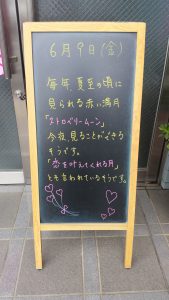 6月9日(金)
毎年、夏至の頃に
見られる赤い満月
「ストロベリームーン」
今夜見ることができる
そうです。
「恋を叶えてくれる月」
とも言われているそうです。